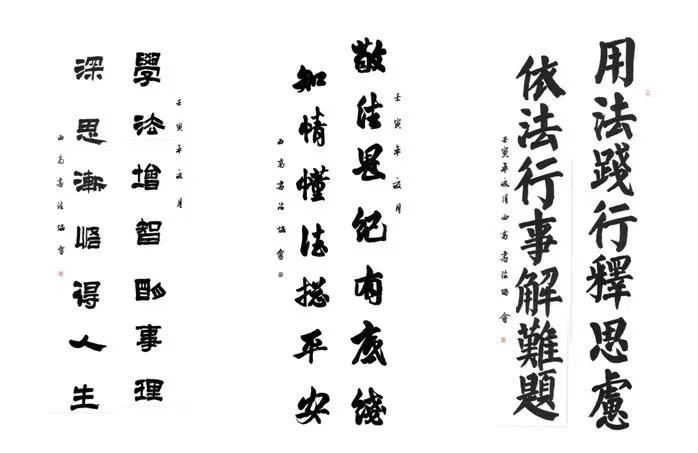 用法踐行釋思慮
依法行事解難題
壬寅年夏月西高書法協會
壬寅年夏月
敬法畏紀有底綫
知情懂法平安
西高書法協會
壬寅年夏月
學法增智明事理
深思漸悟得人生
西高書法協會